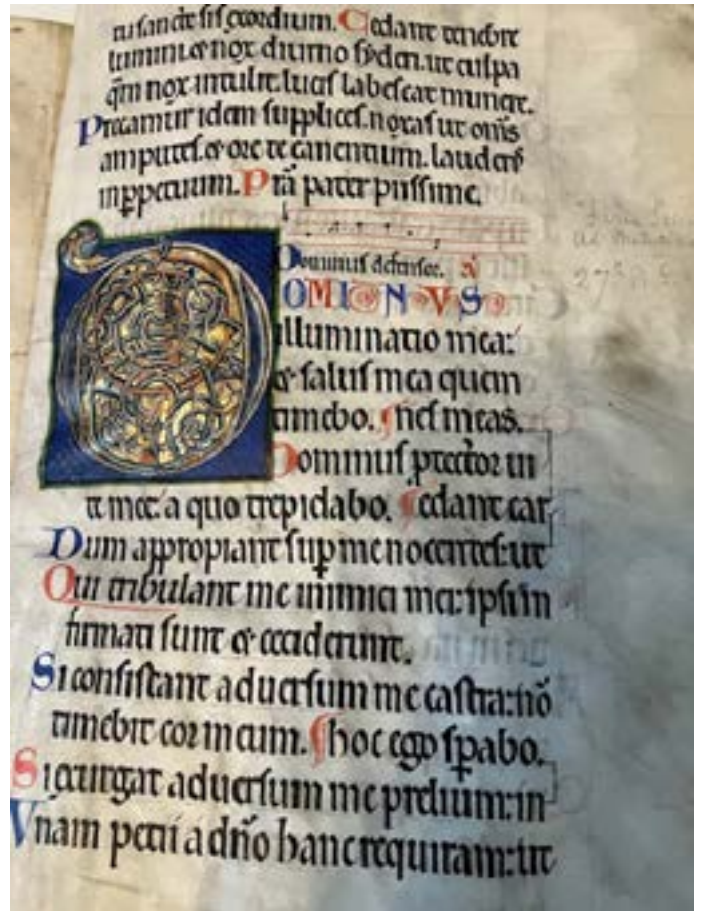 tu sancte sis exordium. Cedant tenebre
lumini & nox diurno syderi. ut culpa
qm nox intulit. lucis labescat munere.
Precamur idem supplices. noxas ut omis
amputes. & ore te canentium. lauderis
inppetuum. Pra pater piissime.
Dominus defensor.
DOMINVS
illuminatio mea:
& salus mea quem
timebo. ¶nes meas.
Dominus ptector ui
te mee: a quo trepidabo. ¶edant car
Dum appropiant sup me nocentes: ut
Qui tribulant me inimici mei: ipsi in
firmati sunt & ceciderunt.
Si consistant aduersum me castra: no
timebit cor meum. ¶hoc ego spabo.
Si exurgat aduersum me prelium: in
Vnam petii a dno hanc requiram: ut